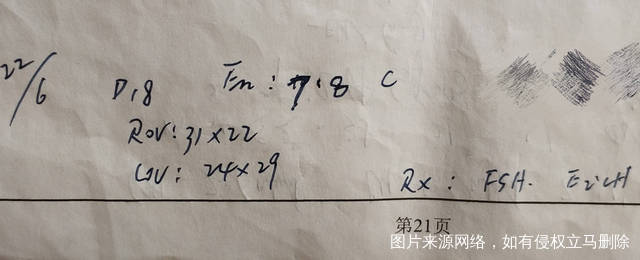 22/6 D18 Em: 7.8 C
ROV: 31x22
LOV: 24x29
Rx: FSH. E2 LH
第21页
图片来源网络，如有侵权立马删除